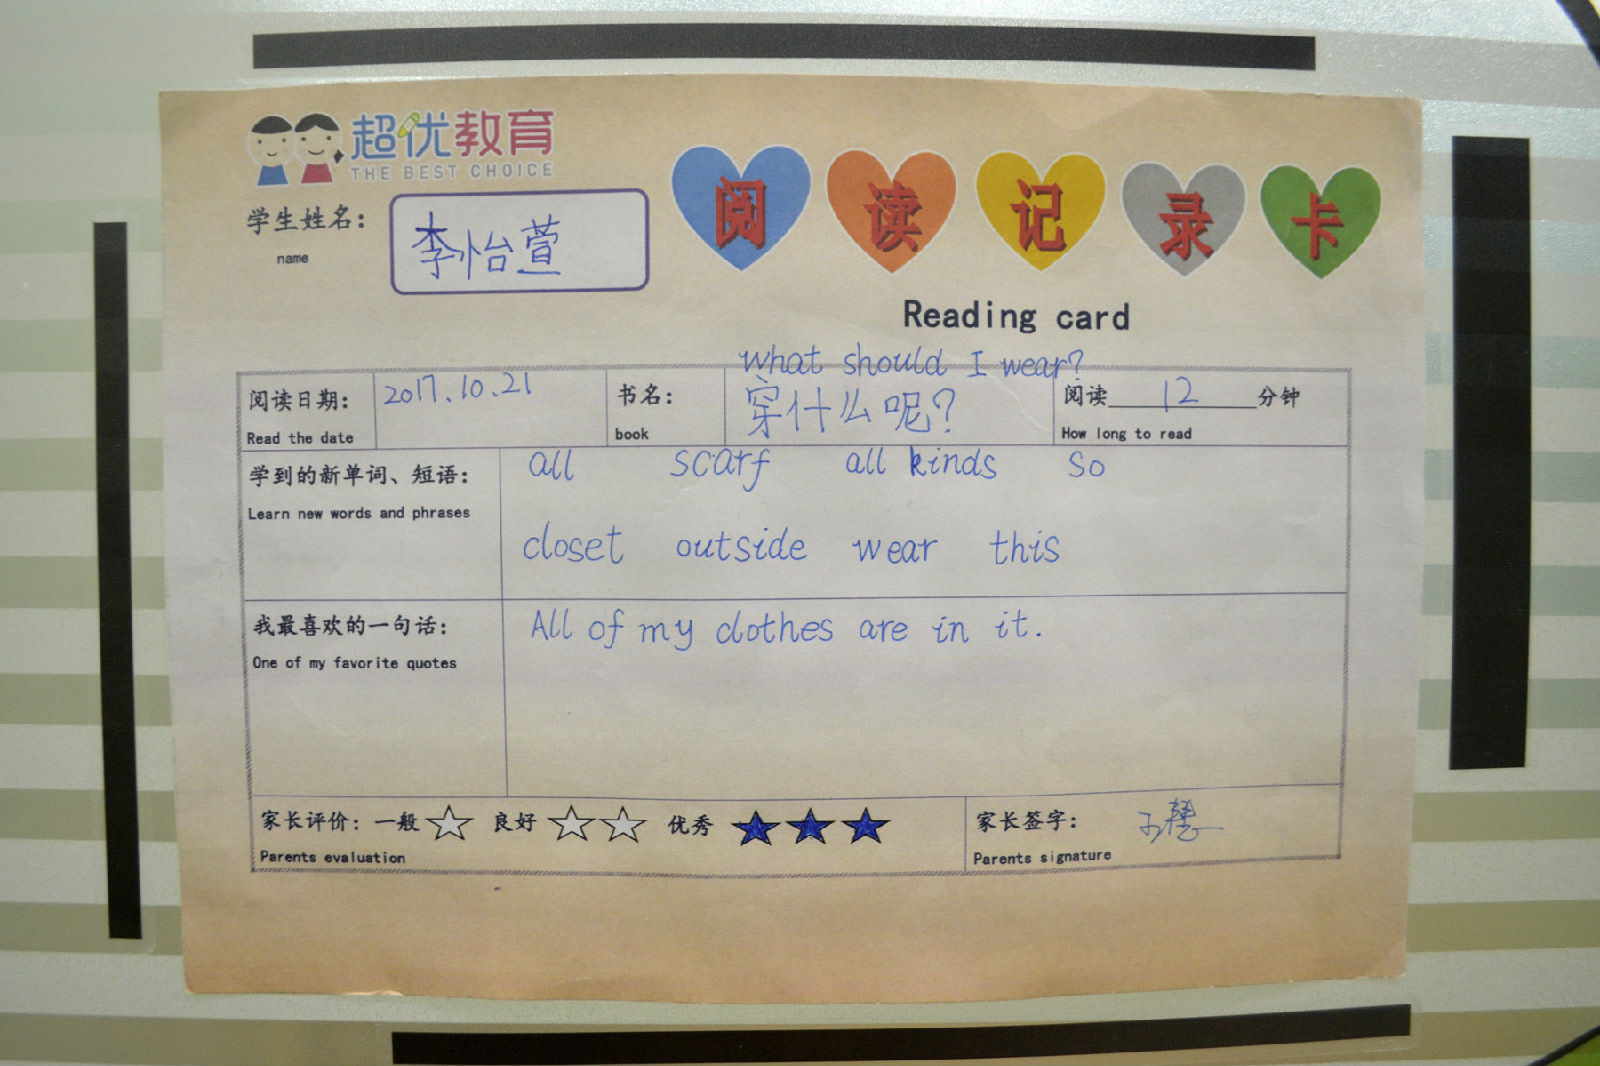 超优教育
THE BEST CHOICE
学生姓名：
name
李怡萱
阅读记录卡
Reading card
阅读日期：
Read the date
2017.10.21
书名：
book
What should I wear?
穿什么呢？
阅读 12 分钟
How long to read
学到的新单词、短语：
Learn new words and phrases
all scarf all kinds so
closet outside wear this
我最喜欢的一句话：
One of my favorite quotes
All of my clothes are in it.
家长评价：一般 良好 优秀
Parents evaluation
家长签字：
Parents signature